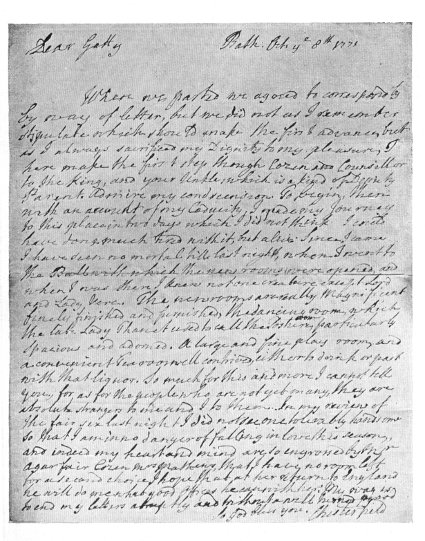 Dear Gatty
Bath. Oct. ye 8th 1771
When we parted we agreed to correspond
by way of letter, but we did not as I remember
stipulate which should make the first advance, but
as I always sacrifice my Dignity to my pleasure, I
have make the first step though Cozen and Counsellor
to the King, and your Unkle, which is a kind of
Parent. Admire my condescension. To begin then
with an account of my Caducity. I made my Journey
to this place in two days which I did not think I could
have done, much tired with it, but alive. Since I came
I have seen no mortal till last night, when I went to
the Ball with which the new rooms were opened, and
when I was there I knew not one creature except Lord
and Lady Vere. The new rooms are really Magnificent
finely finished and furnished, the dancing room, which
the late Lady Thanet used to call the Posteer, particularly
spacious and adorned. A large and fine play room, and
a convenient Tea room well contrived, either to drink or part
with that liquor. So much for this and more I cannot tell
you, for as for the people who are not yet many, they are
absolute strangers to me and I to them. In my review of
the fair sex last night I did not see one tolerably handsome
so that I am in no danger of falling in love this season,
and indeed my heart and mind are so engrossed by
fair Cozen that I have no room left
for a second choice, I hope that at her return to England
he will do me as good offices as he can with her. The way is
to send my letters
So God bless you. Chesterfield